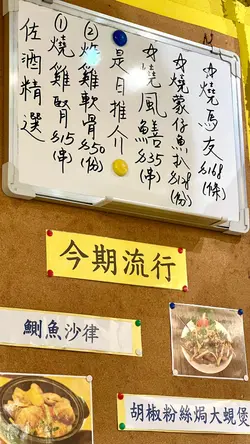 ☆燒馬友 $168(條)
☆燒蒙仔魚扒 $128(份)
☆燒風鱔 $35(串)
是日推介
② 炸雞軟骨 $50(份)
① 燒雞腎 $15(串)
佐酒精選
今期流行
鰂魚沙律
胡椒粉絲焗大蜆煲